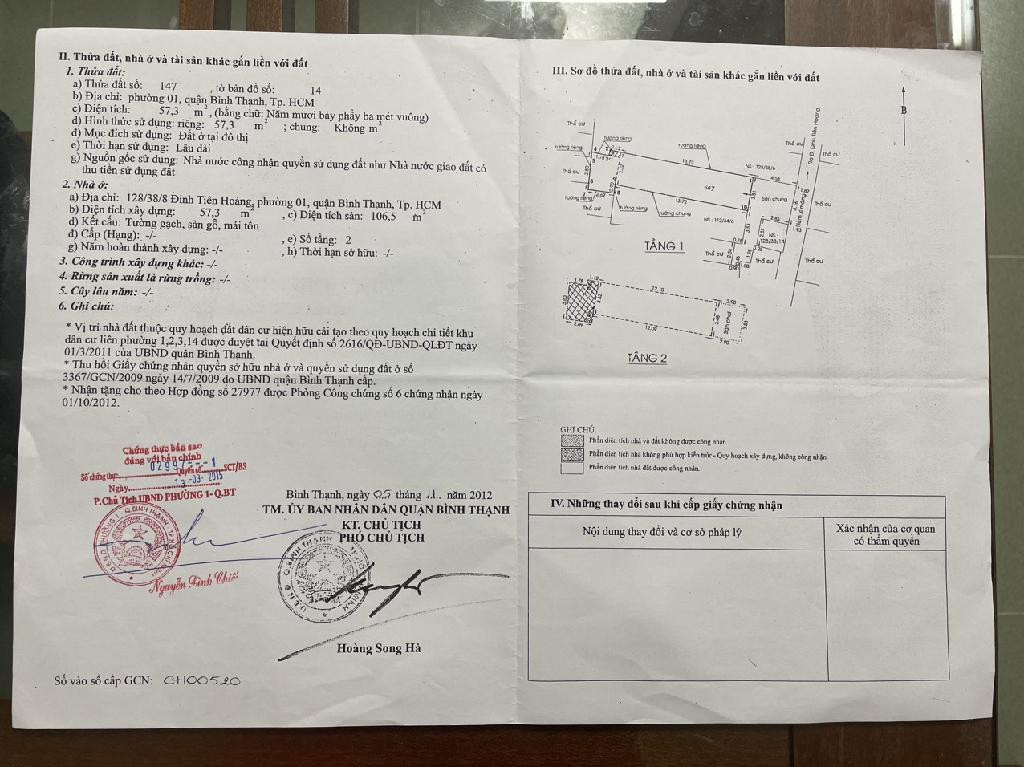 II. Thửa đất, nhà ở và tài sản khác gắn liền với đất
1. Thửa đất:
a) Thửa đất số: 147 , tờ bản đồ số: 14
b) Địa chỉ: phường 01, quận Bình Thạnh, Tp. HCM
c) Diện tích: 57,3 m², (bằng chữ: Năm mươi bảy phẩy ba mét vuông)
d) Hình thức sử dụng: riêng: 57,3 m²; chung: Không m²
đ) Mục đích sử dụng: Đất ở tại đô thị
e) Thời hạn sử dụng: Lâu dài
g) Nguồn gốc sử dụng: Nhà nước công nhận quyền sử dụng đất như Nhà nước giao đất có
thu tiền sử dụng đất
2. Nhà ở:
a) Địa chỉ: 128/38/8 Đinh Tiên Hoàng, phường 01, quận Bình Thạnh, Tp. HCM
b) Diện tích xây dựng: 57,3 m² , c) Diện tích sàn: 106,5 m²
d) Kết cấu: Tường gạch, sàn gỗ, mái tôn
đ) Cấp (Hạng): -/- , e) Số tầng: 2
g) Năm hoàn thành xây dựng: -/- , h) Thời hạn sở hữu: -/-
3. Công trình xây dựng khác: -/-
4. Rừng sản xuất là rừng trồng: -/-
5. Cây lâu năm: -/-
6. Ghi chú:
* Vị trí nhà đất thuộc quy hoạch đất dân cư hiện hữu cải tạo theo quy hoạch chi tiết khu
dân cư liên phường 1,2,3,14 được duyệt tại Quyết định số 2616/QĐ-UBND-QLĐT ngày
01/3/2011 của UBND quận Bình Thạnh.
* Thu hồi Giấy chứng nhận quyền sở hữu nhà ở và quyền sử dụng đất ở số
3367/GCN/2009 ngày 14/7/2009 do UBND quận Bình Thạnh cấp.
* Nhận tặng cho theo Hợp đồng số 27977 được Phòng Công chứng số 6 chứng nhận ngày
01/10/2012.
Chứng thực bản sao
đúng với bản chính
Số chứng thực 0299 Quyển số 1 SCT/BS
Ngày 13-03-2015
P.Chủ Tịch UBND PHƯỜNG 1-Q.BT
Nguyễn Đình Chiến
Bình Thạnh, ngày 05 tháng 11 năm 2012
TM. ỦY BAN NHÂN DÂN QUẬN BÌNH THẠNH
KT. CHỦ TỊCH
PHÓ CHỦ TỊCH
Hoàng Song Hà
Số vào sổ cấp GCN: CH00520
III. Sơ đồ thửa đất, nhà ở và tài sản khác gắn liền với đất
B
Thổ cư
tường riêng
tường riêng
13,72
447
tường riêng
tường chung
Sân chung
Thổ cư
Thổ cư
Thổ cư
TẦNG 1
TẦNG 2
GHI CHÚ
Phần diện tích nhà và đất không được công nhận
Phần diện tích nhà không phù hợp kiến trúc - Quy hoạch xây dựng, không công nhận
Phần diện tích nhà đất được công nhận.
IV. Những thay đổi sau khi cấp giấy chứng nhận
Nội dung thay đổi và cơ sở pháp lý
Xác nhận của cơ quan
có thẩm quyền